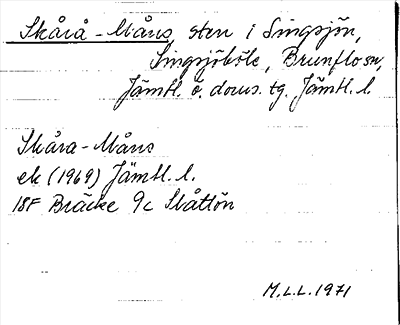 Skårå-Måns, sten i Singsjön,
Singsjöböle, Brunflo sn,
Jämtl. ö. doms. tg. Jämtl. l.
Skåra-Måns
ek (1969) Jämtl. l.
18F Bräcke 9c Slåttön
M.L.L. 1971